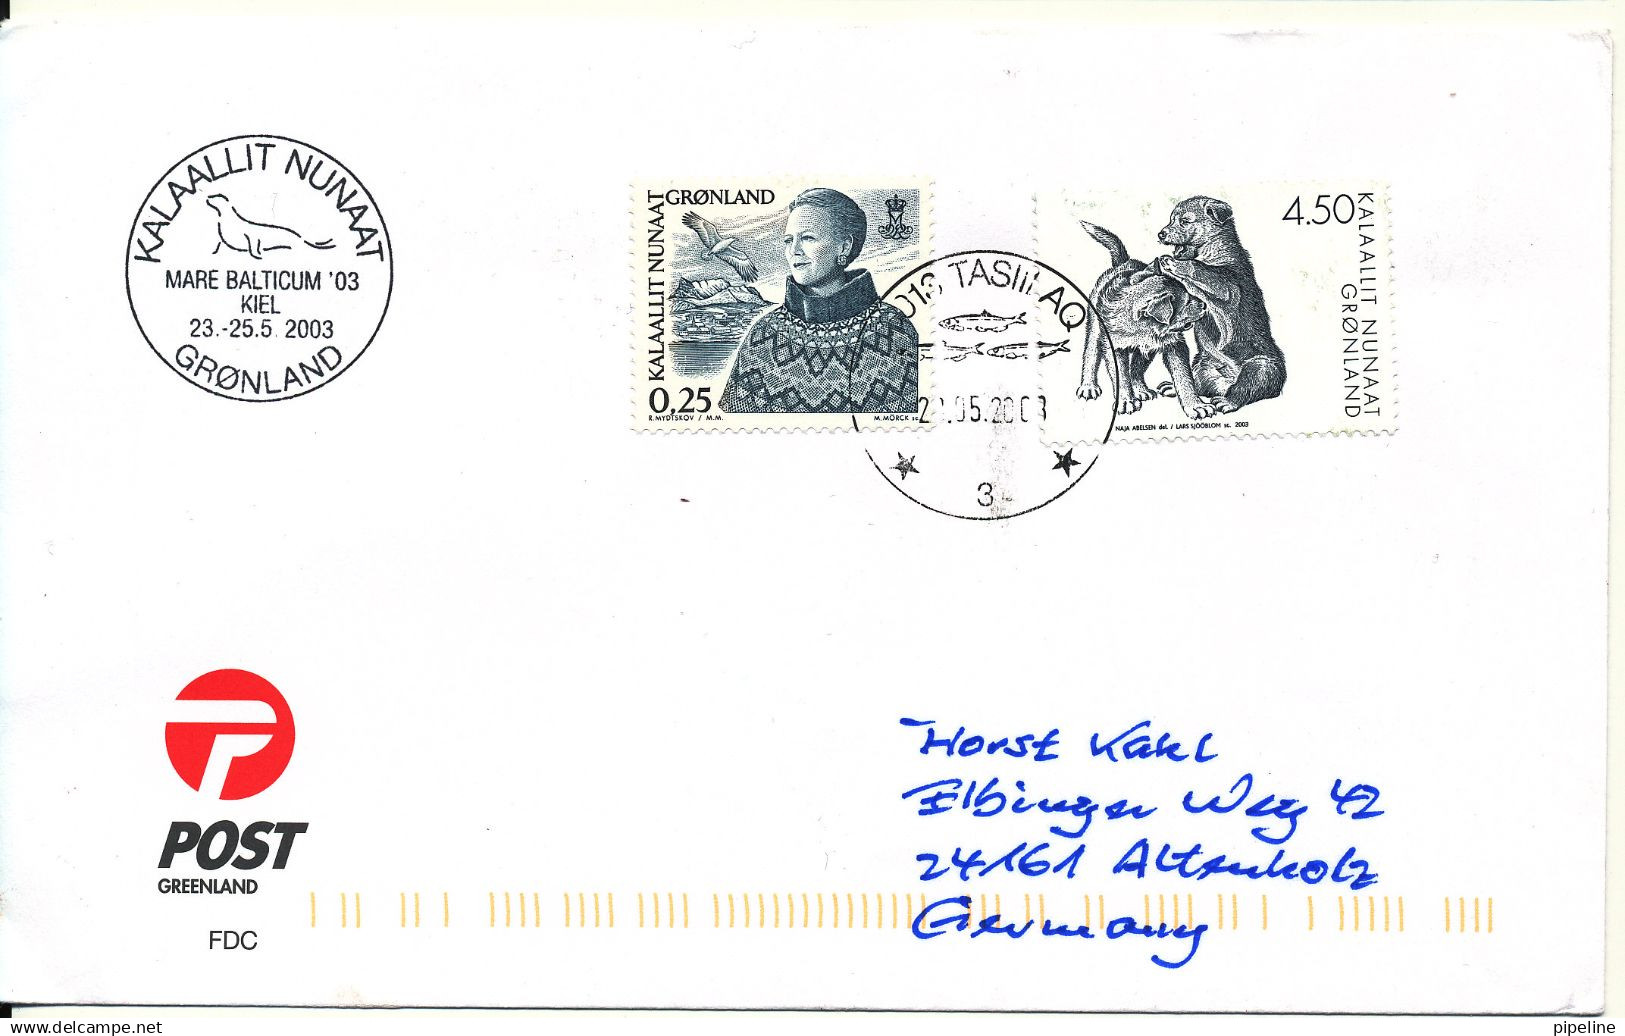 KALAALLIT NUNAAT
MARE BALTICUM '03
KIEL
23.-25.5. 2003
GRØNLAND
GRØNLAND
KALAALLIT NUNAAT
0,25
R. MYDTSKOV / M.M.
M. MÖRCK sc.
TASIILAQ
.05.2003
3
4.50
KALAALLIT NUNAAT
GRØNLAND
NAJA ABELSEN del. / LARS SJÖÖBLOM sc. 2003
POST
GREENLAND
FDC
Horst Kahl
Elbinger Weg 42
24161 Altenholz
Germany
pipeline